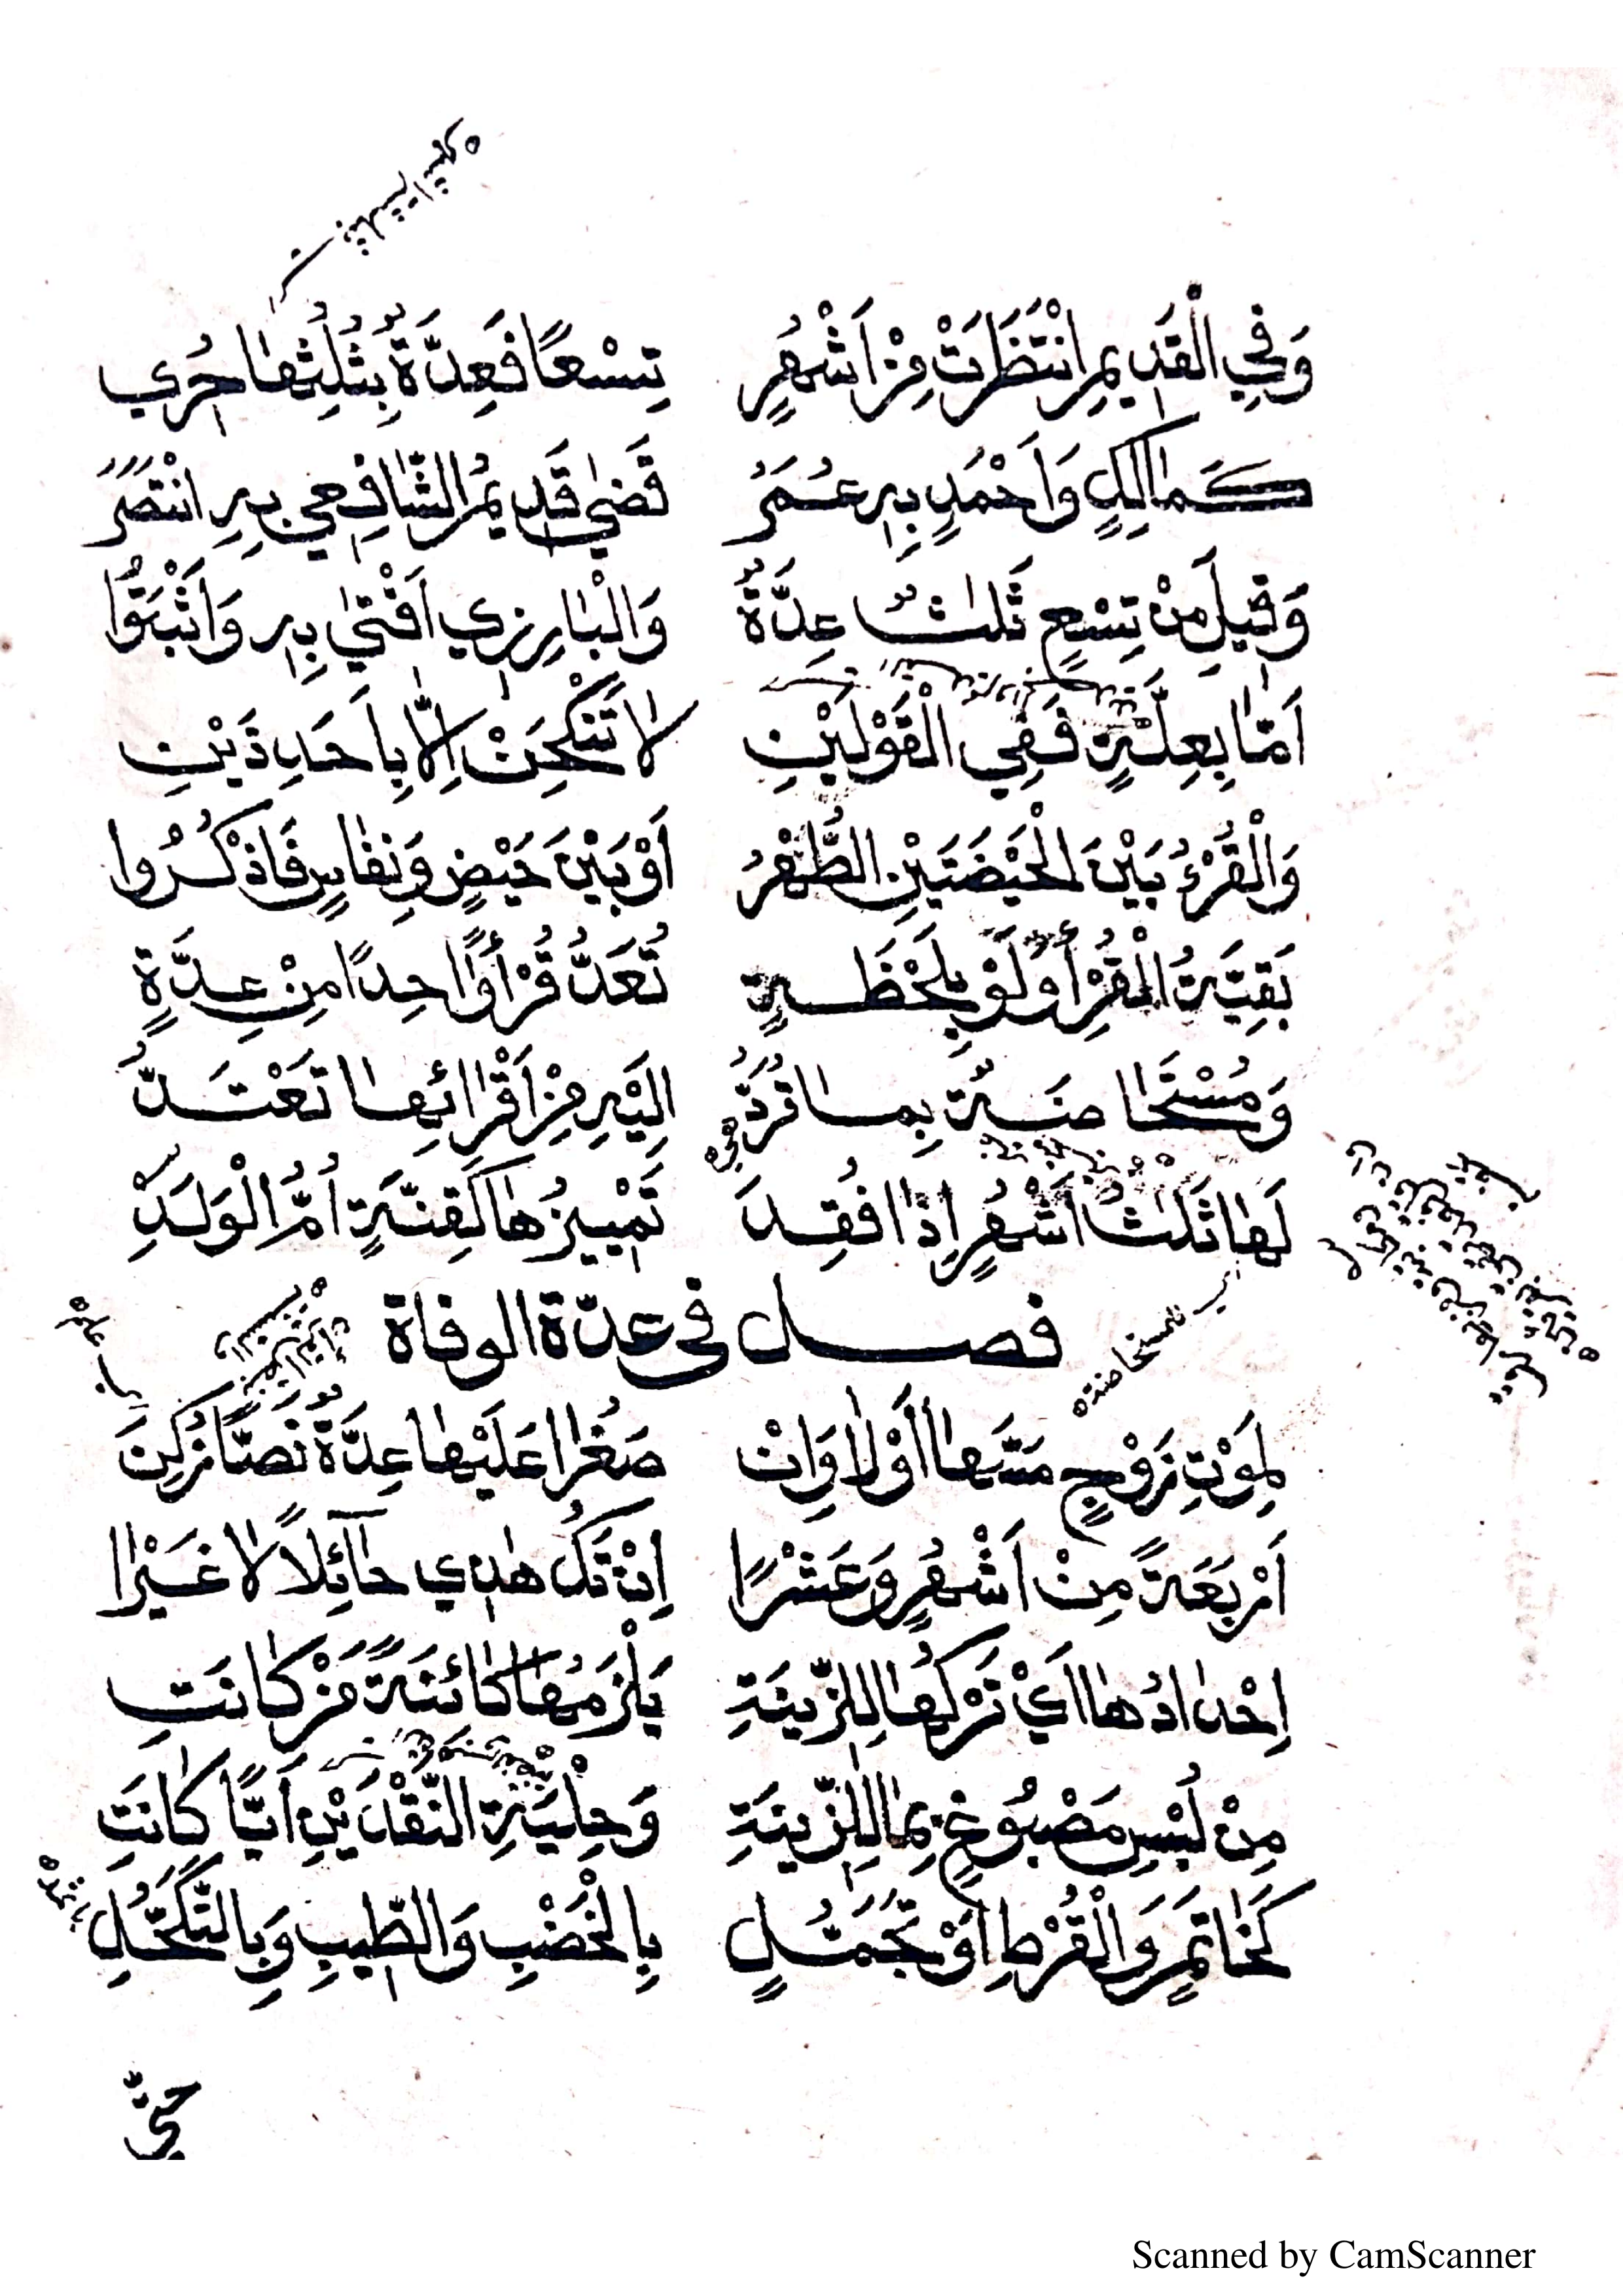 وَفِي الْقَدِيمِ انْتَظَرَتْ مِنْ اَشْهُرٍ تِسْعًا فَعِدَّةٌ بِثُلُثِهَا حُرِي
كَمَالِكٍ وَاَحْمَدٍ بِهِ عُمَرُ قَضٰى قَدِيمُ الشَّافِعِي بِهِ انْتَصَرَ
وَقِيلَ مِنْ تِسْعٍ ثَلٰثٌ عِدَّةٌ وَالْبَارِزِي اَفْتٰى بِهِ وَاَثْبَتُوا
اَمَّا بِعِلَّةٍ فَفِي الْقَوْلَيْنِ لَا تَنْكِحَنْ اِلَّا بِاَحَدِ ذَيْنِ
وَالْقُرْءُ بَيْنَ الْحَيْضَتَيْنِ الطُّهْرُ اَوْ بَيْنَ حَيْضٍ وَنِفَاسٍ فَاذْكُرُوا
بَقِيَّةُ الْقُرْأِ وَلَوْ بِلَحْظَةٍ تُعَدُّ قُرْأً وَاحِدًا مِنْ عِدَّةٍ
وَمُسْتَحَاضَةٌ بِمَا تُرَدُّ اِلَيْهِ مِنْ اَقْرَائِهَا تَعْتَدُّ
لَهَا ثَلٰثُ اَشْهُرٍ اِذَا فُقِدَ تَمْيِيزُهَا كَقِنَّةٍ اُمُّ الْوَلَدِ
اي للمستحاضة
فصل في عدّة الوفاة
لِمَوْتِ زَوْجٍ مَسَّهَا اَوْ لَا وَاِنْ صَغُرَا عَلَيْهَا عِدَّةٌ نَصًّا زُكِنَ
اَرْبَعَةً مِنْ اَشْهُرٍ وَعَشْرًا اِنْ تَكُ هٰذِي حَآئِلًا لَا غَيْرَا
اِحْدَادُهَا اَيْ تَرْكُهَا لِلزِّينَةِ يَلْزَمُهَا كَائِنَةً مَنْ كَانَتِ
مِنْ لُبْسِ مَصْبُوغٍ بِمَا لِلزِّينَةِ وَحِلْيَةِ النَّقْدَيْنِ اَيًّا كَانَتِ
كَخَاتَمٍ وَالْقُرْطِ اَوْ تَجَمُّلٍ بِالْخَضْبِ وَالطِّيبِ وَبِالتَّكَحُّلِ
حتّى
Scanned by CamScanner